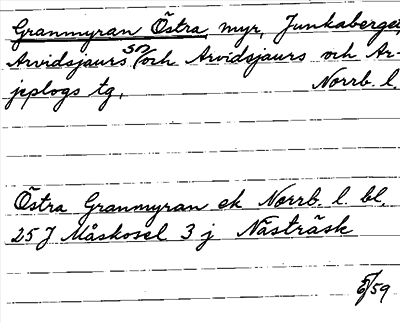 Granmyran Östra, myr, Junkaberget,
Arvidsjaurs sn och Arvidsjaurs och Ar-
jeplogs tg, Norrb. l.
Östra Granmyran ek Norrb. l. bl.
25 J Måskosel 3 j Nästräsk
59